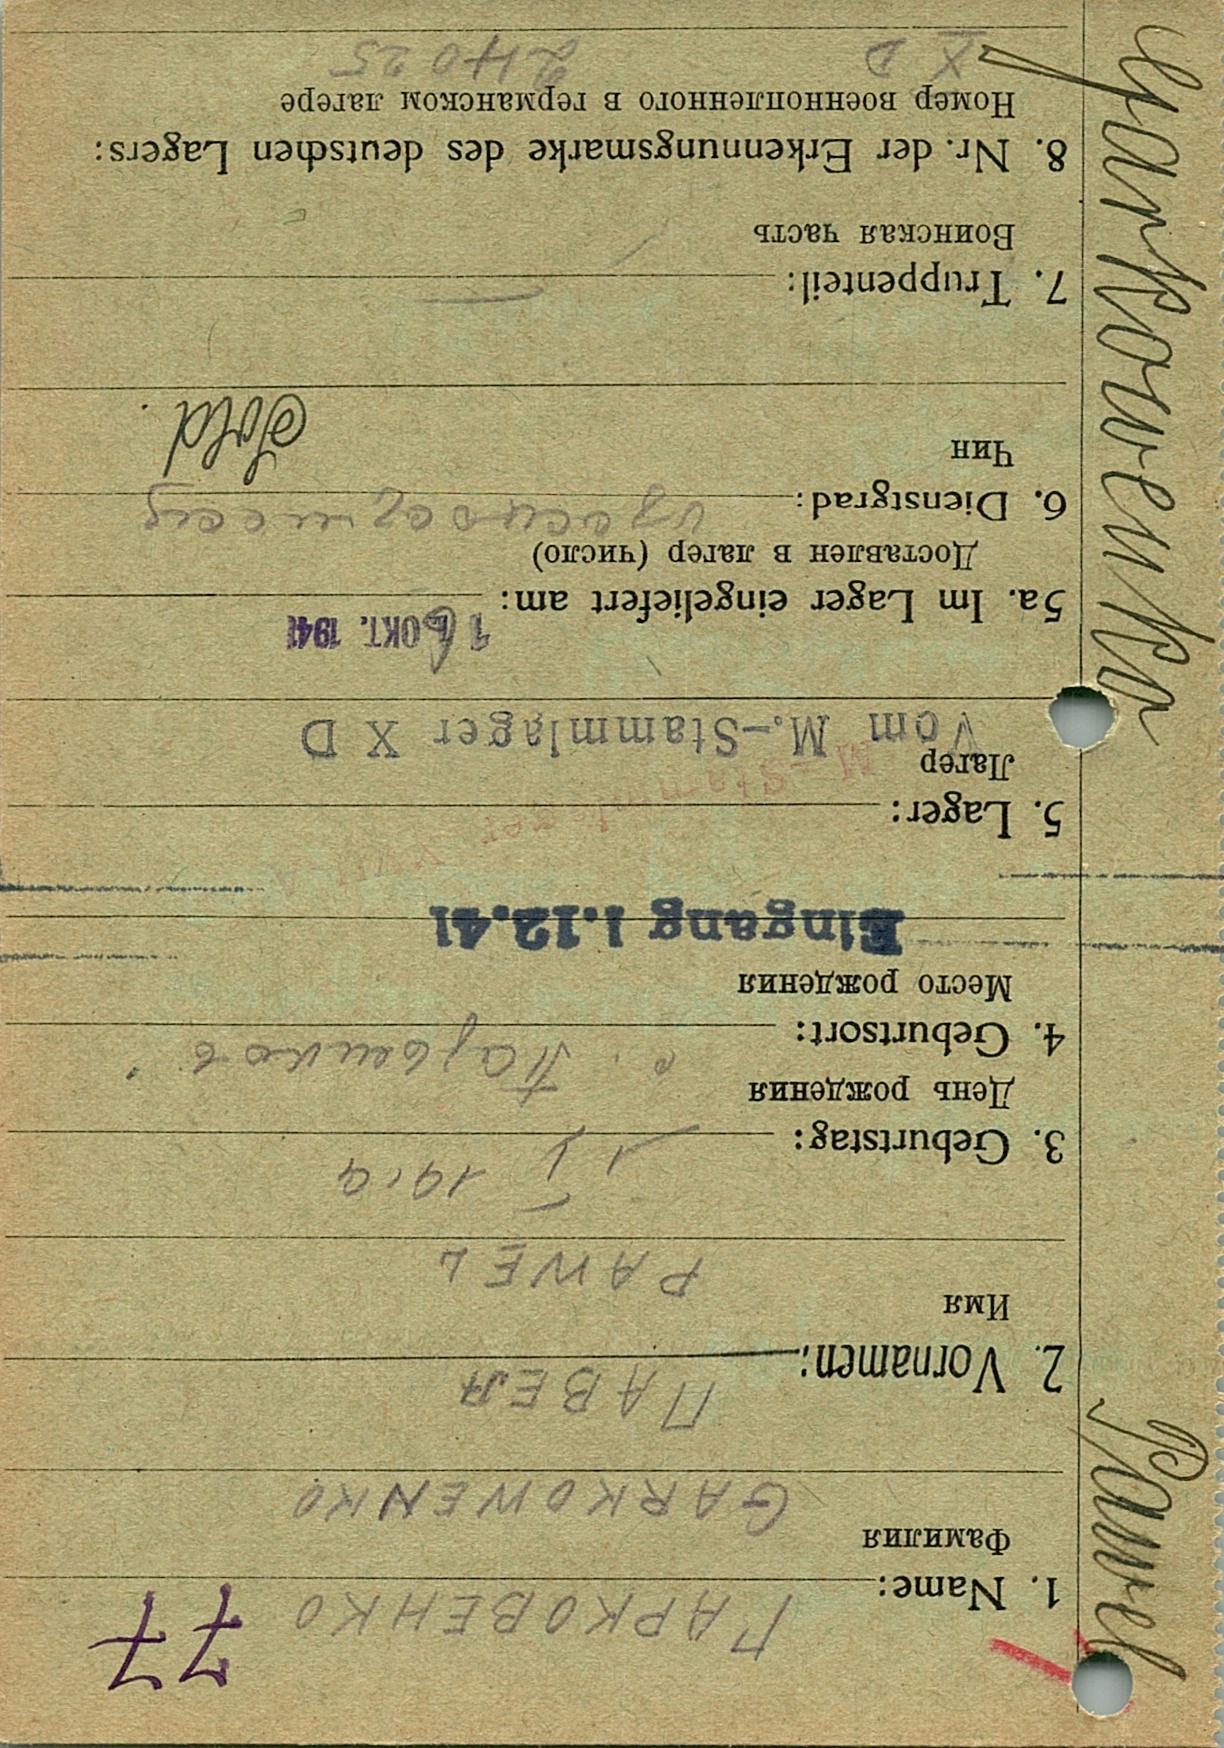 77
ГАРКОВЕНКО
1. Name:
Фамилия
GARKOWENKO
ПАВЕЛ
2. Vornamen:
Имя
PAWEL
1 I 1919
3. Geburtstag:
День рождения
с.
4. Geburtsort:
Место рождения
Eingang 1.12.41
5. Lager:
Лагер
Vom M.-Stammlager X D
16 OKT. 1941
5a. Im Lager eingeliefert am:
Доставлен в лагер (число)
6. Dienstgrad:
Чин
Sold.
7. Truppenteil:
Воинская часть
8. Nr. der Erkennungsmarke des deutschen Lagers:
Номер военнопленного в германском лагере
X D 24025
Garkowenko Pawel